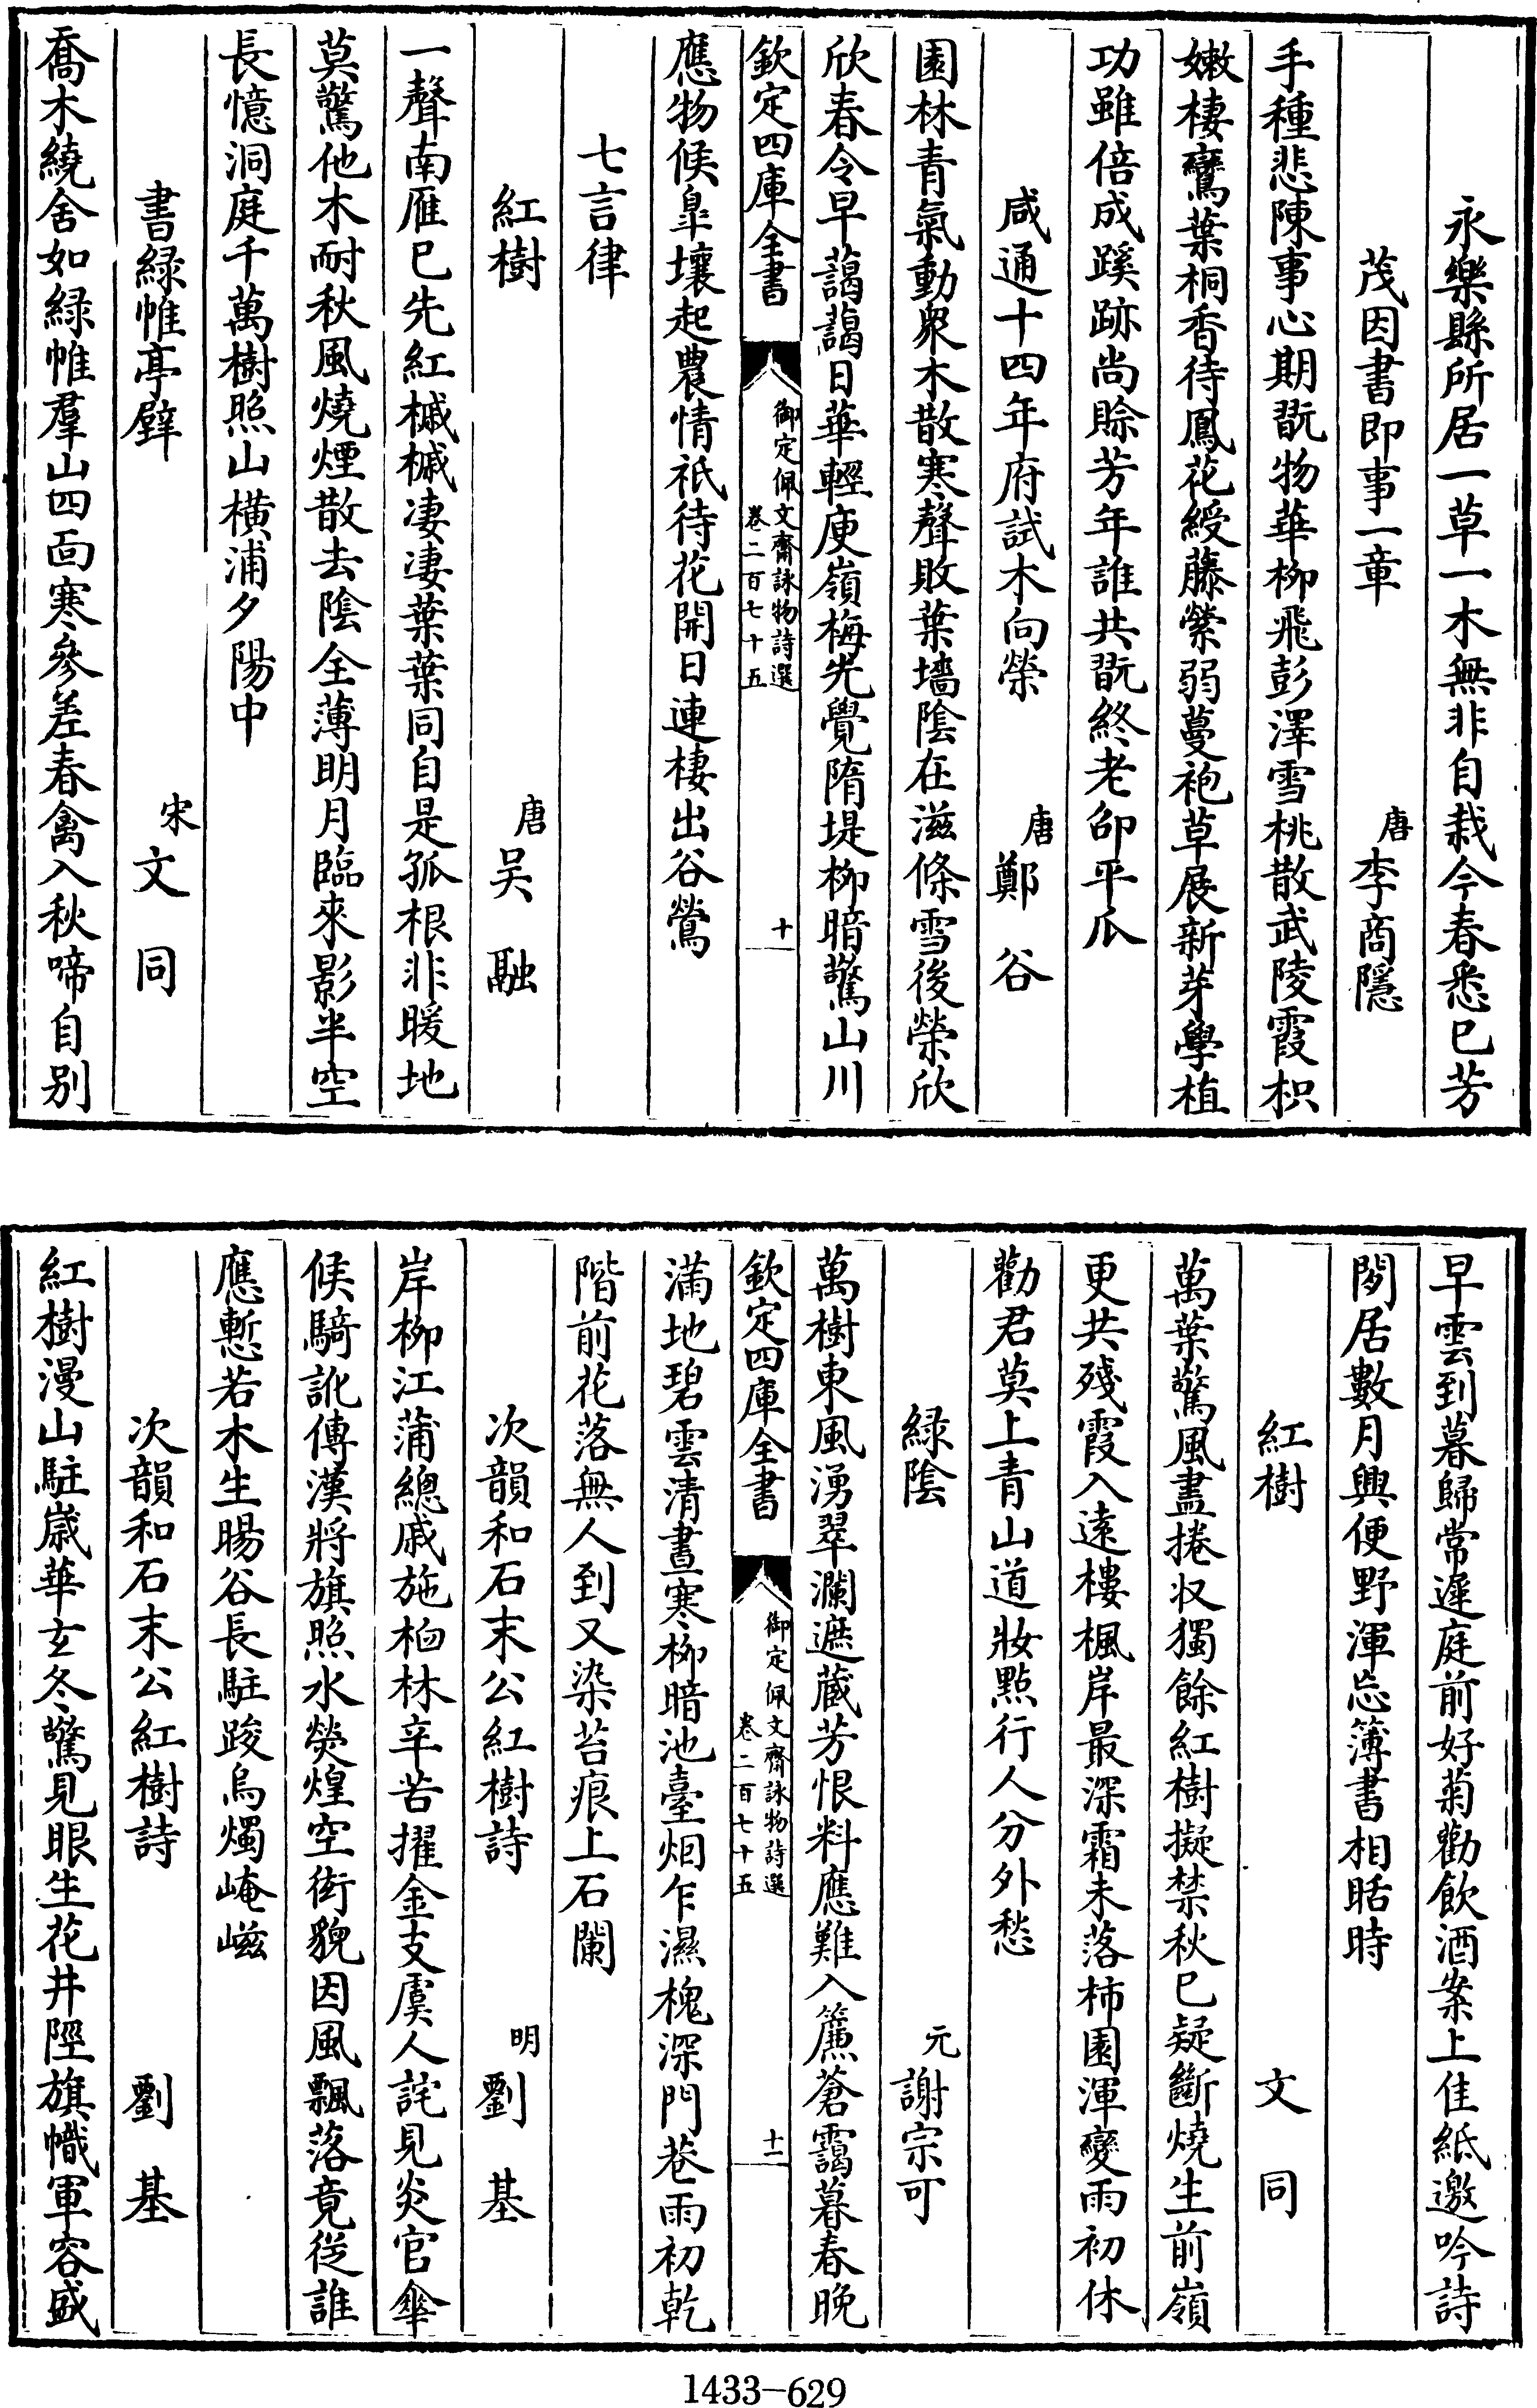 永樂縣所居一草一木無非自栽今春悉已芳
茂因書即事一章　唐李商隱
手種悲陳事心期翫物華柳飛彭澤雪桃散武陵霞枳
嫩棲鸞葉桐香待鳳花綬藤縈弱蔓袍草展新芽學植
功雖倍成蹊跡尚賒芳年誰共翫終老卲平瓜
咸通十四年府試木向榮　唐鄭谷
園林青氣動衆木散寒聲敗葉墻陰在滋條雪後榮欣
欣春令早藹藹日華輕庾嶺梅先覺隋堤柳暗驚山川
欽定四庫全書　御定佩文齋詠物詩選　卷二百七十五　十
應物候臯壤起農情祇待花開日連棲出谷鶯
七言律
紅樹　唐吴融
一聲南雁已先紅槭槭凄凄葉葉同自是孤根非暖地
莫驚他木耐秋風燒煙散去陰全薄明月臨來影半空
長憶洞庭千萬樹照山横浦夕陽中
書緑帷亭壁　宋文同
喬木繞舍如緑帷羣山四面寒參差春禽入秋啼自别
早雲到暮歸常遲庭前好菊勸飲酒案上佳紙邀吟詩
閑居數月興便野渾忘簿書相聒時
紅樹　文同
萬葉驚風盡捲收獨餘紅樹擬禁秋已疑斷燒生前嶺
更共殘霞入遠樓楓岸最深霜未落柿園渾變雨初休
勸君莫上青山道妝點行人分外愁
緑陰　元謝宗可
萬樹東風湧翠瀾遮蔵芳恨料應難入簾蒼靄暮春晚
欽定四庫全書　御定佩文齋詠物詩選　卷二百七十五　十一
滿地碧雲清晝寒柳暗池臺烟乍濕槐深門巷雨初乾
階前花落無人到又染苔痕上石闌
次韻和石末公紅樹詩　明劉基
岸柳江蒲總戚施栢林辛苦擢金支虞人詫見炎官傘
候騎訛傳漢將旗照水熒煌空衒貌因風飄落竟從誰
應慙若木生暘谷長駐踆烏燭崦嵫
次韻和石末公紅樹詩　劉基
紅樹漫山駐嵗華玄冬驚見眼生花井陘旗幟軍容盛
1433-629